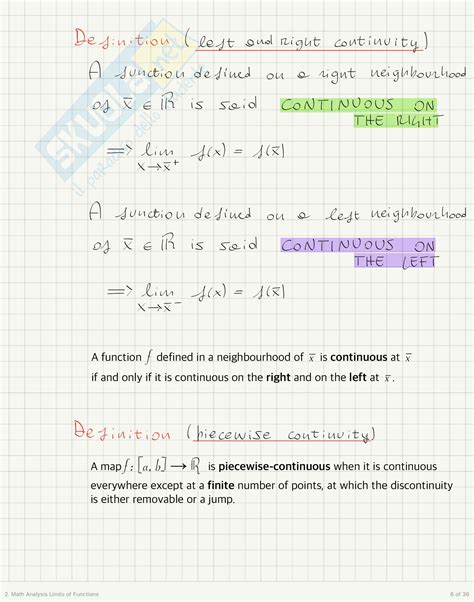 Definition (left and right continuity)
A function defined on a right neighbourhood
of x̄ ∈ ℝ is said CONTINUOUS ON
THE RIGHT
⟹ lim f(x) = f(x̄)
x→x̄⁺
A function defined on a left neighbourhood
of x̄ ∈ ℝ is said CONTINUOUS ON
THE LEFT
⟹ lim f(x) = f(x̄)
x→x̄⁻
A function f defined in a neighbourhood of x̄ is continuous at x̄
if and only if it is continuous on the right and on the left at x̄.
Definition (piecewise continuity)
A map f: [a, b] → ℝ is piecewise-continuous when it is continuous
everywhere except at a finite number of points, at which the discontinuity
is either removable or a jump.
2. Math Analysis Limits of Functions
6 of 36